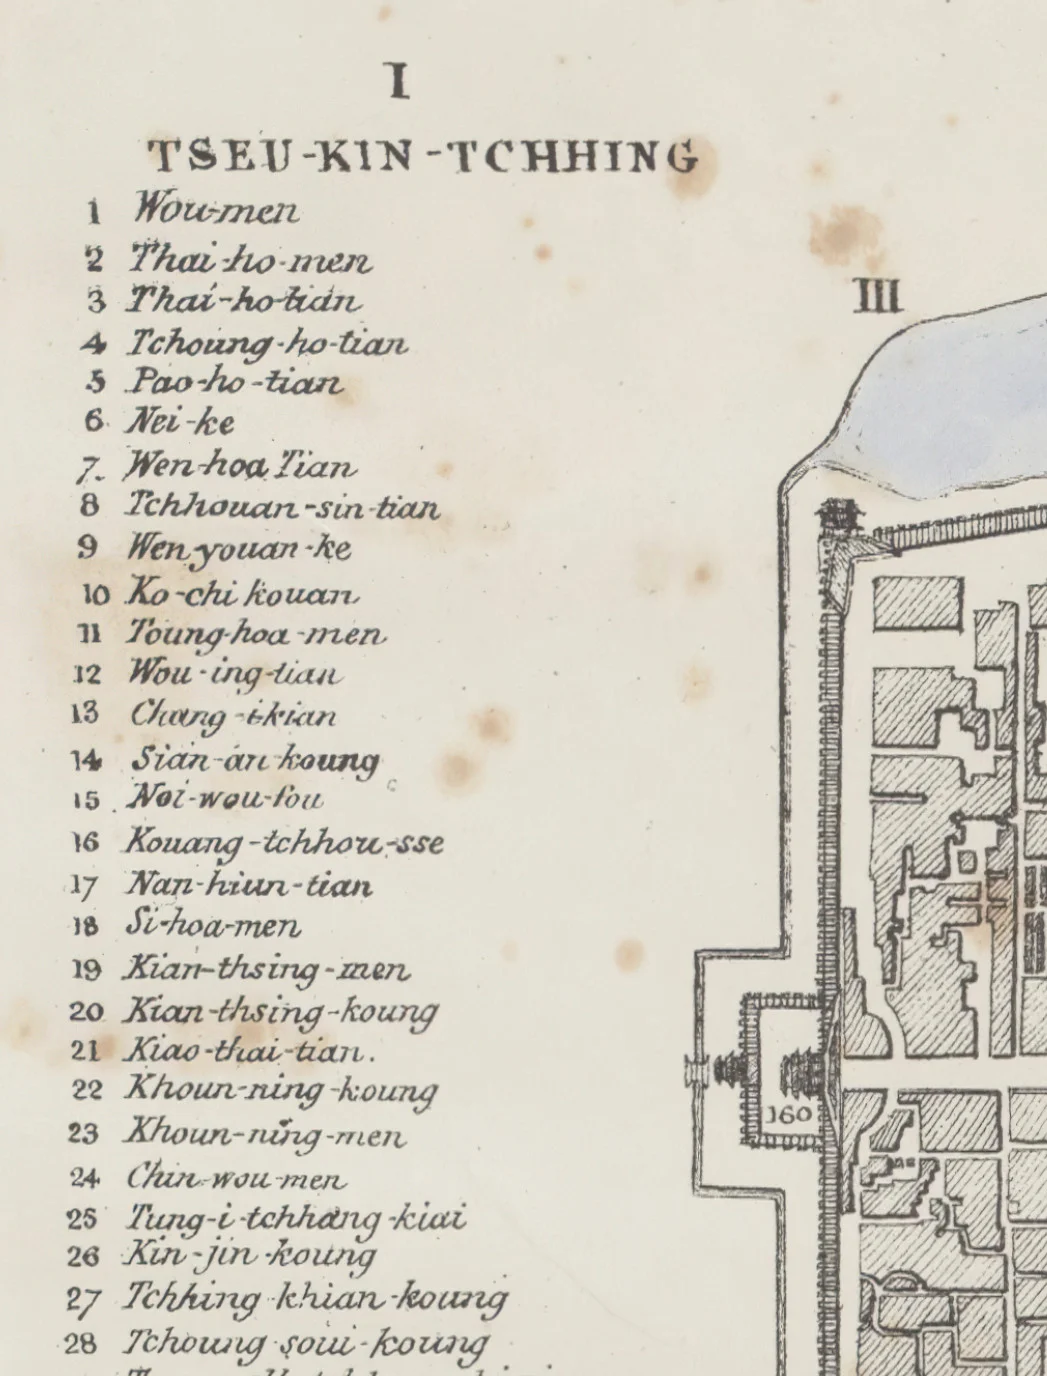 I
TSEU-KIN-TCHHING
1 Wou-men
2 Thai-ho-men
3 Thai-ho-tian
4 Tchoung-ho-tian
5 Pao-ho-tian
6 Nei-ke
7. Wen-hoa Tian
8 Tchhouan-sin-tian
9 Wen-youan-ke
10 Ko-chi kouan
11 Toung-hoa-men
12 Wou-ing-tian
13 Chang-i-kian
14 Sian-an-koung
15 Noi-wou-fou
16 Kouang-tchhou-sse
17 Nan-hiun-tian
18 Si-hoa-men
19 Kian-thsing-men
20 Kian-thsing-koung
21 Kiao-thai-tian.
22 Khoun-ning-koung
23 Khoun-ning-men
24 Chin-wou-men
25 Tung-i-tchhang-kiai
26 Kin-jin-koung
27 Tchhing-khian-koung
28 Tchoung-soui-koung
III
160